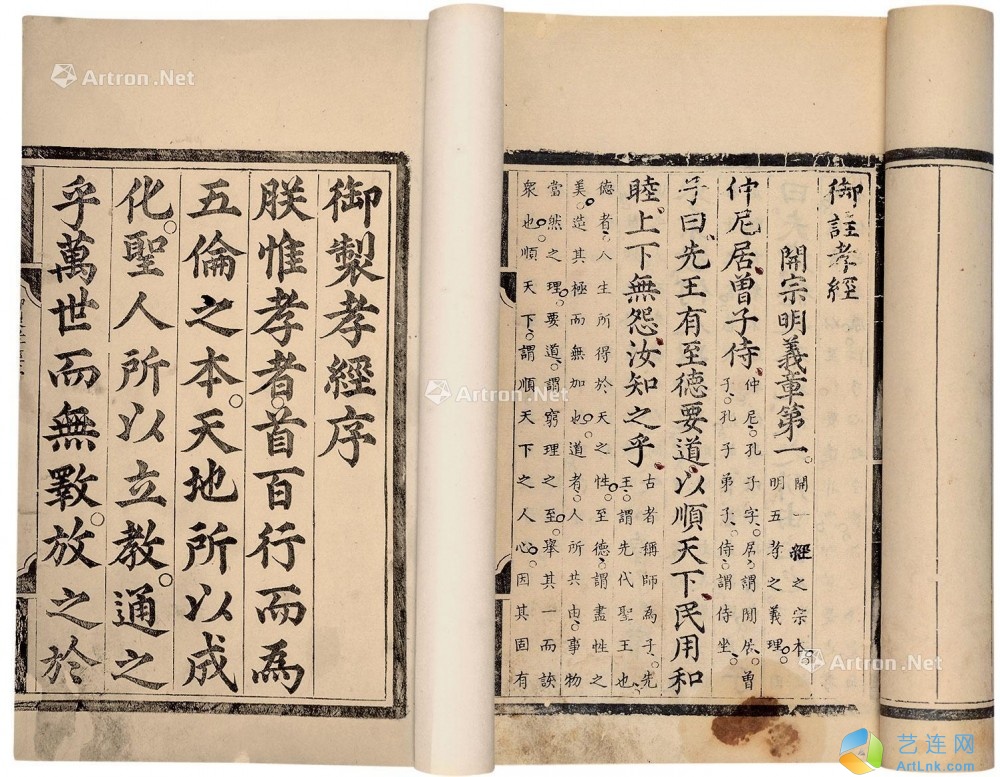 御註孝經
開宗明義章第一
開一經之宗本。
明五孝之義理。
仲尼居、曾子侍、
仲尼。孔子字。居。謂閒居。曾
子。孔子弟子。侍。謂侍坐。
子曰、先王有至德要道、以順天下、民用和
睦、上下無怨、汝知之乎、
古者稱師為子。先
王。謂先代聖王也。
德者。人生所得於天之性。至德。謂盡性之
美。造其極而無加也。道者。人所共由。事物
當然之理。要道。謂窮理之至。舉其一而該
衆也。順天下。謂順天下之人心。因其固有
御製孝經序
朕惟孝者。首百行而為
五倫之本。天地所以成
化。聖人所以立教。通之
乎萬世而無斁。放之於
Artron.Net
Artron.Net
Artron.Net
Artron.Net
艺连网
ArtLnk.com